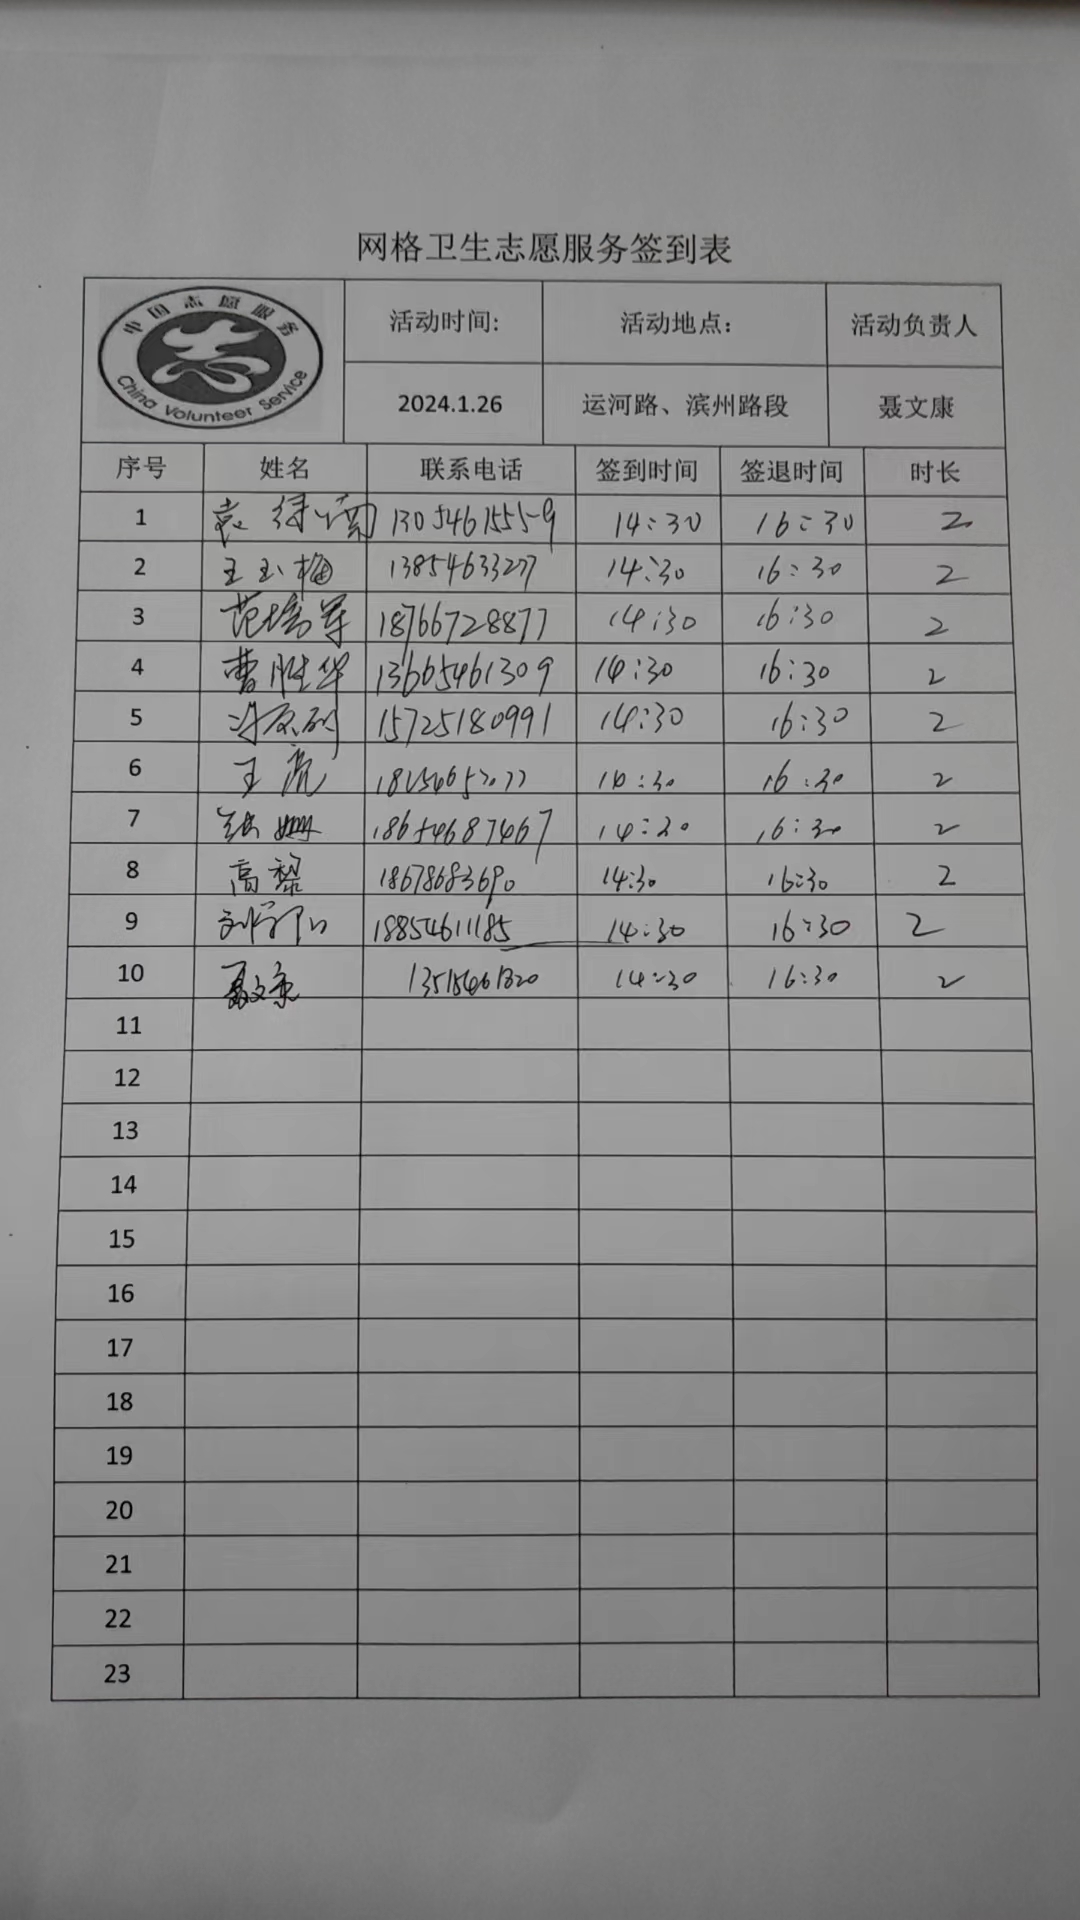 网格卫生志愿服务签到表
中国志愿服务
China Volunteer Service
活动时间: 活动地点: 活动负责人
2024.1.26 运河路、滨州路段 聂文康
序号 姓名 联系电话 签到时间 签退时间 时长
1 袁 13054615559 14:30 16:30 2
2 王玉梅 13854633277 14:30 16:30 2
3 范培军 18766728877 14:30 16:30 2
4 曹胜华 13665461309 14:30 16:30 2
5 15725180991 14:30 16:30 2
6 王亮 14:30 16:30 2
7 18654687467 14:30 16:30 2
8 高黎 18678683690 14:30 16:30 2
9 18854611185 14:30 16:30 2
10 聂文康 13515461320 14:30 16:30 2
11
12
13
14
15
16
17
18
19
20
21
22
23